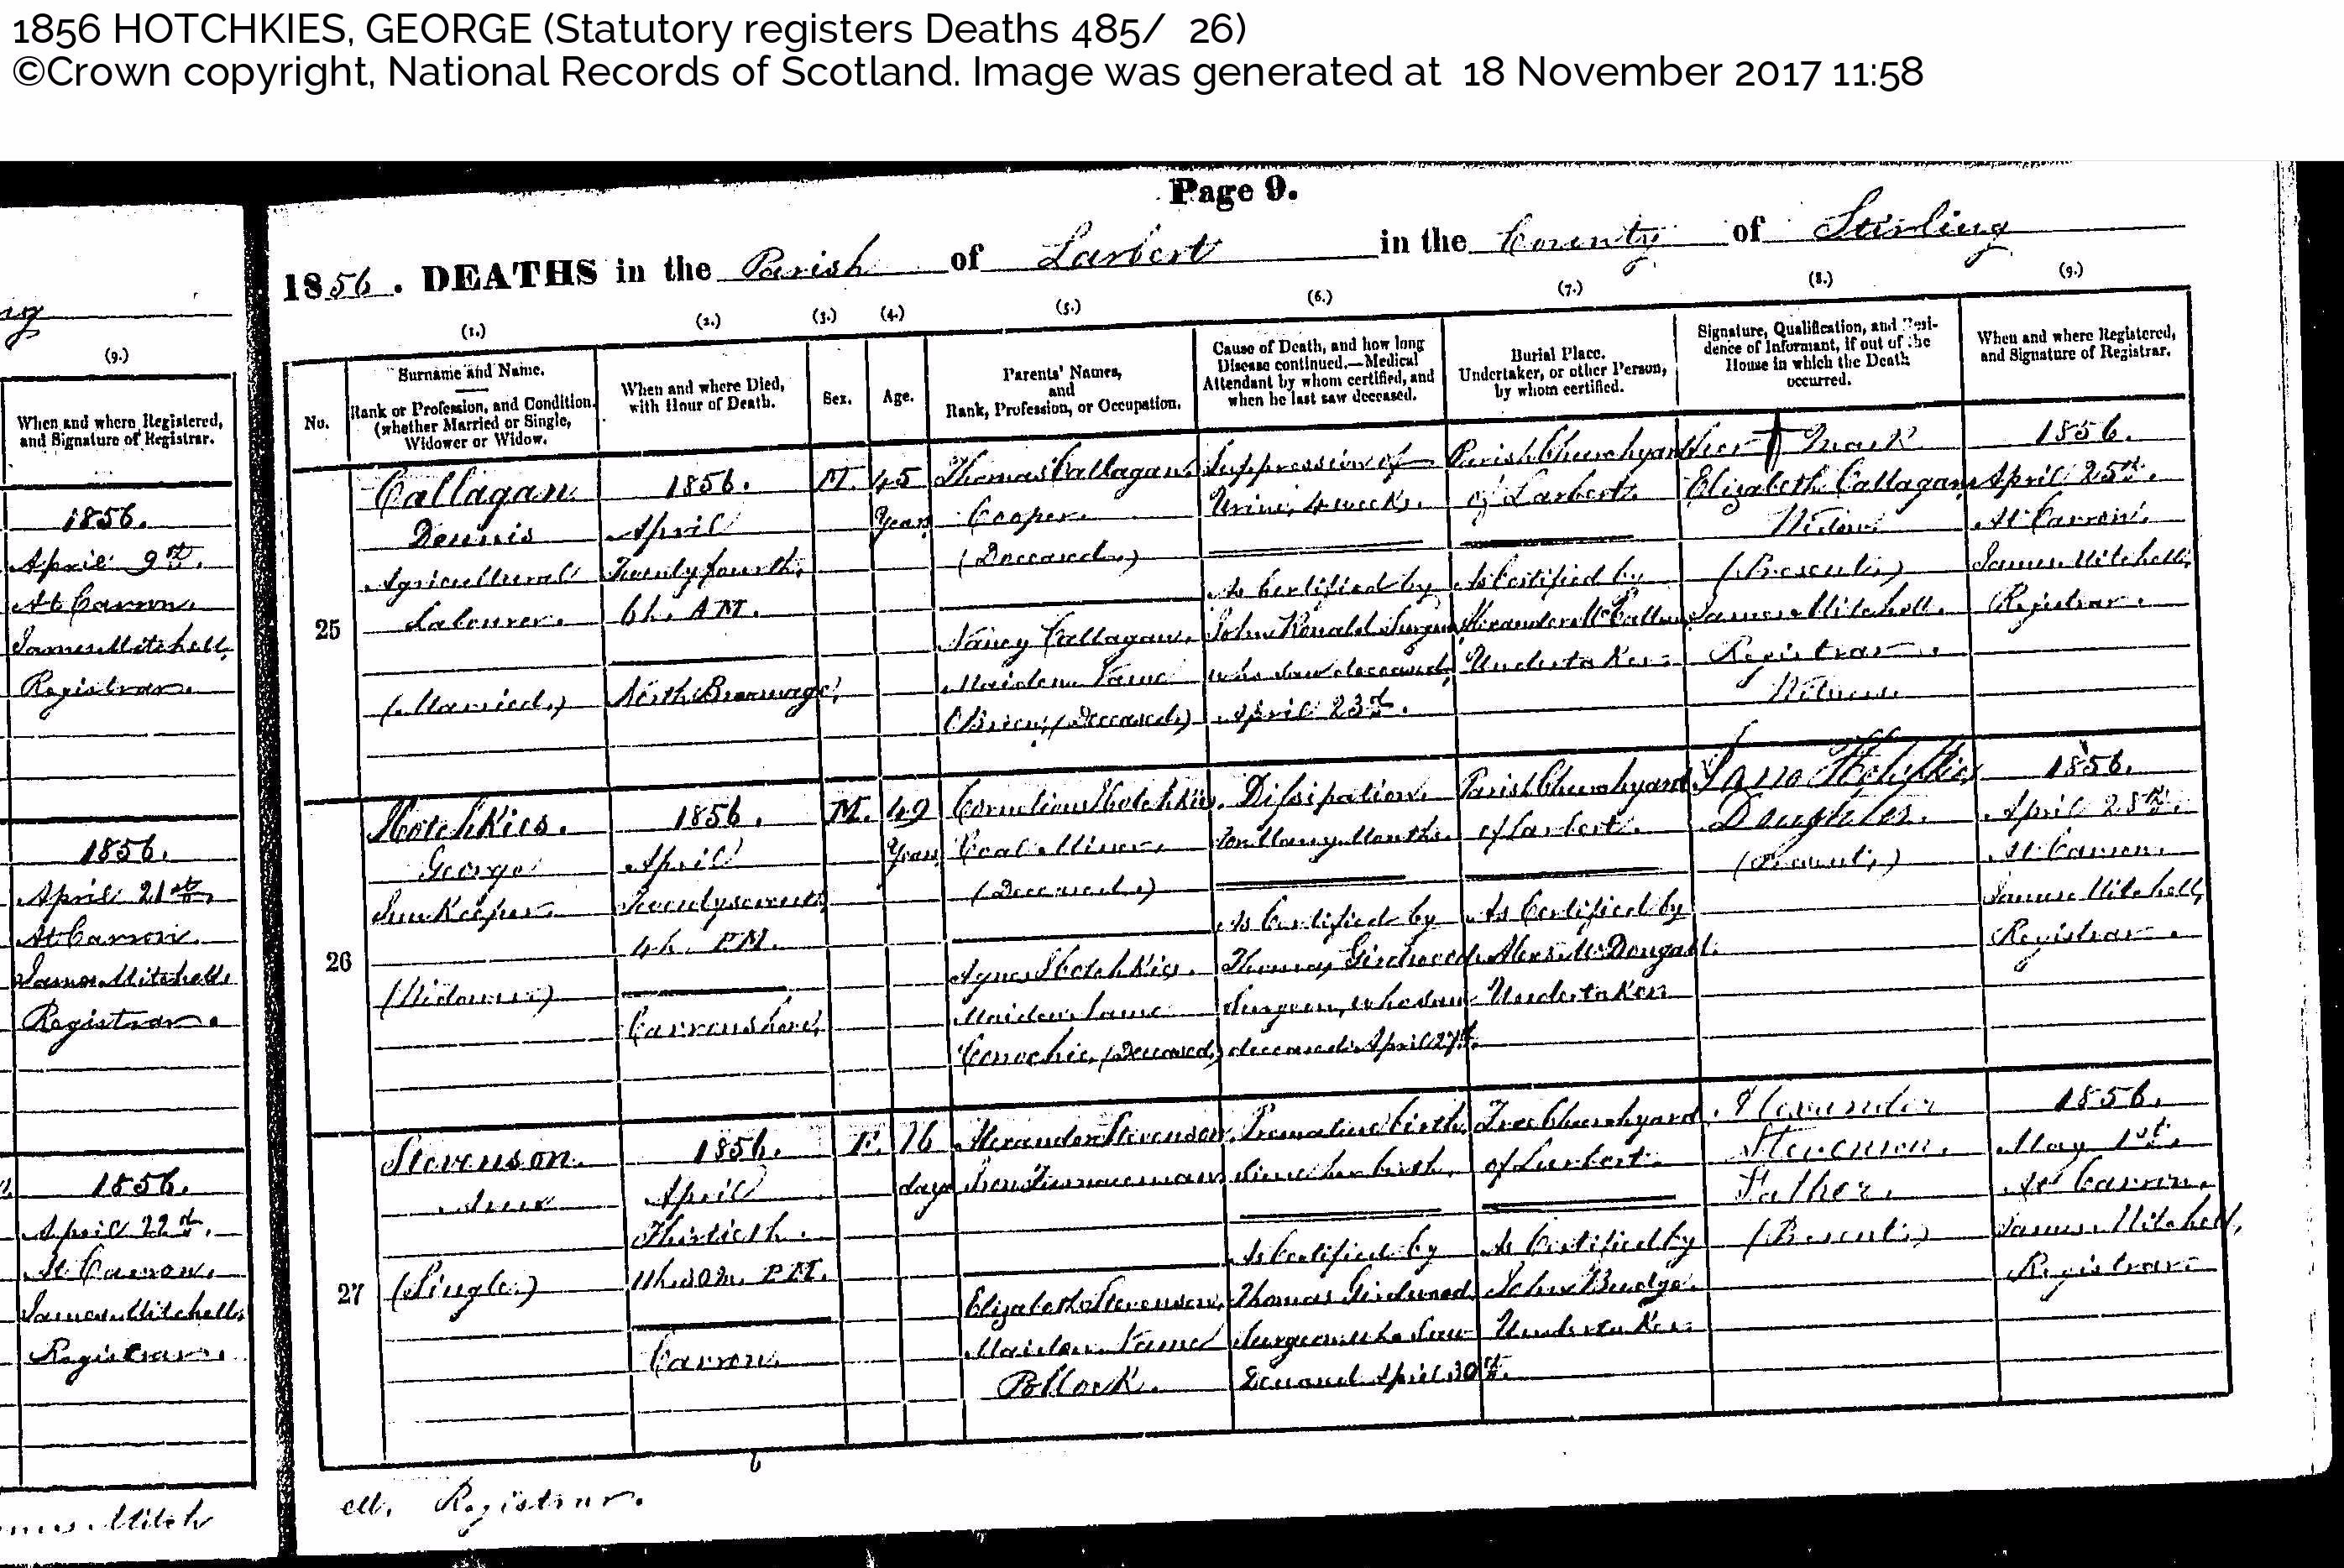 1856 HOTCHKIES, GEORGE (Statutory registers Deaths 485/ 26)
©Crown copyright, National Records of Scotland. Image was generated at 18 November 2017 11:58
(9.)
When and where Registered,
and Signature of Registrar.
1856.
April 9th.
At Carron.
James Mitchell,
Registrar.
1856.
April 21st.
At Carron.
James Mitchell,
Registrar.
1856.
April 22d.
At Carron.
James Mitchell,
Registrar.
Page 9.
1856. DEATHS in the Parish of Larbert in the County of Stirling
(1.) (2.) (3.) (4.) (5.) (6.) (7.) (8.) (9.)
No.
Surname and Name.
Rank or Profession, and Condition.
(whether Married or Single,
Widower or Widow.
When and where Died,
with Hour of Death.
Sex.
Age.
Parents' Names,
and
Rank, Profession, or Occupation.
Cause of Death, and how long
Disease continued.—Medical
Attendant by whom certified, and
when he last saw deceased.
Burial Place.
Undertaker, or other Person,
by whom certified.
Signature, Qualification, and Resi-
dence of Informant, if out of the
House in which the Death
occurred.
When and where Registered,
and Signature of Registrar.
25
Callagan
Dennis
Agricultural
Labourer.
(Married.)
1856.
April
Twenty fourth,
6h. A.M.
North Broomage,
M.
45
Years
Thomas Callagan.
Cooper.
(Deceased.)
Nancy Callagan.
Maiden Name
O'Brien, (Deceased)
Suppression of
Urine, 4 weeks.
As Certified by
John Ronald Surgeon
who saw deceased,
April 23d.
Parish Churchyard
of Larbert.
As Certified by
Alexander McCallum
Undertaker.
Her Mark
Elizabeth Callagan
Widow.
(Present.)
James Mitchell.
Registrar.
Witness.
1856.
April 25th.
At Carron.
James Mitchell,
Registrar.
26
Hotchkies.
George
Inn Keeper.
(Widower)
1856.
April
Twenty seventh,
4h. P.M.
Carronshore,
M.
49
Years
Cornelius Hotchkies.
Coal Miner.
(Deceased.)
Agnes Hotchkies.
Maiden Name
Conochie, (Deceased,)
Dissipation.
for Many Months.
As Certified by
Thomas Girdwood
Surgeon, who saw
deceased April 27th.
Parish Churchyard
of Larbert.
As Certified by
Alexr. McDougall.
Undertaker
Daughter.
(Present.)
1856.
April 28th.
At Carron.
James Mitchell,
Registrar.
27
Stevenson.
Anne
(Single.)
1856.
April
Thirtieth.
11h. 30m. P.M.
Carron.
F.
16
days
Alexander Stevenson.
Iron Furnaceman
Elizabeth Stevenson.
Maiden Name
Pollock.
Premature birth,
since her birth.
As Certified by
Thomas Girdwood,
Surgeon who saw
Deceased April 30th.
Free Churchyard.
of Larbert.
As Certified by
John Budge.
Undertaker.
Alexander
Stevenson.
Father.
(Present.)
1856.
May 1st.
At Carron.
James Mitchell,
Registrar.
Mitch
ell. Registrar.